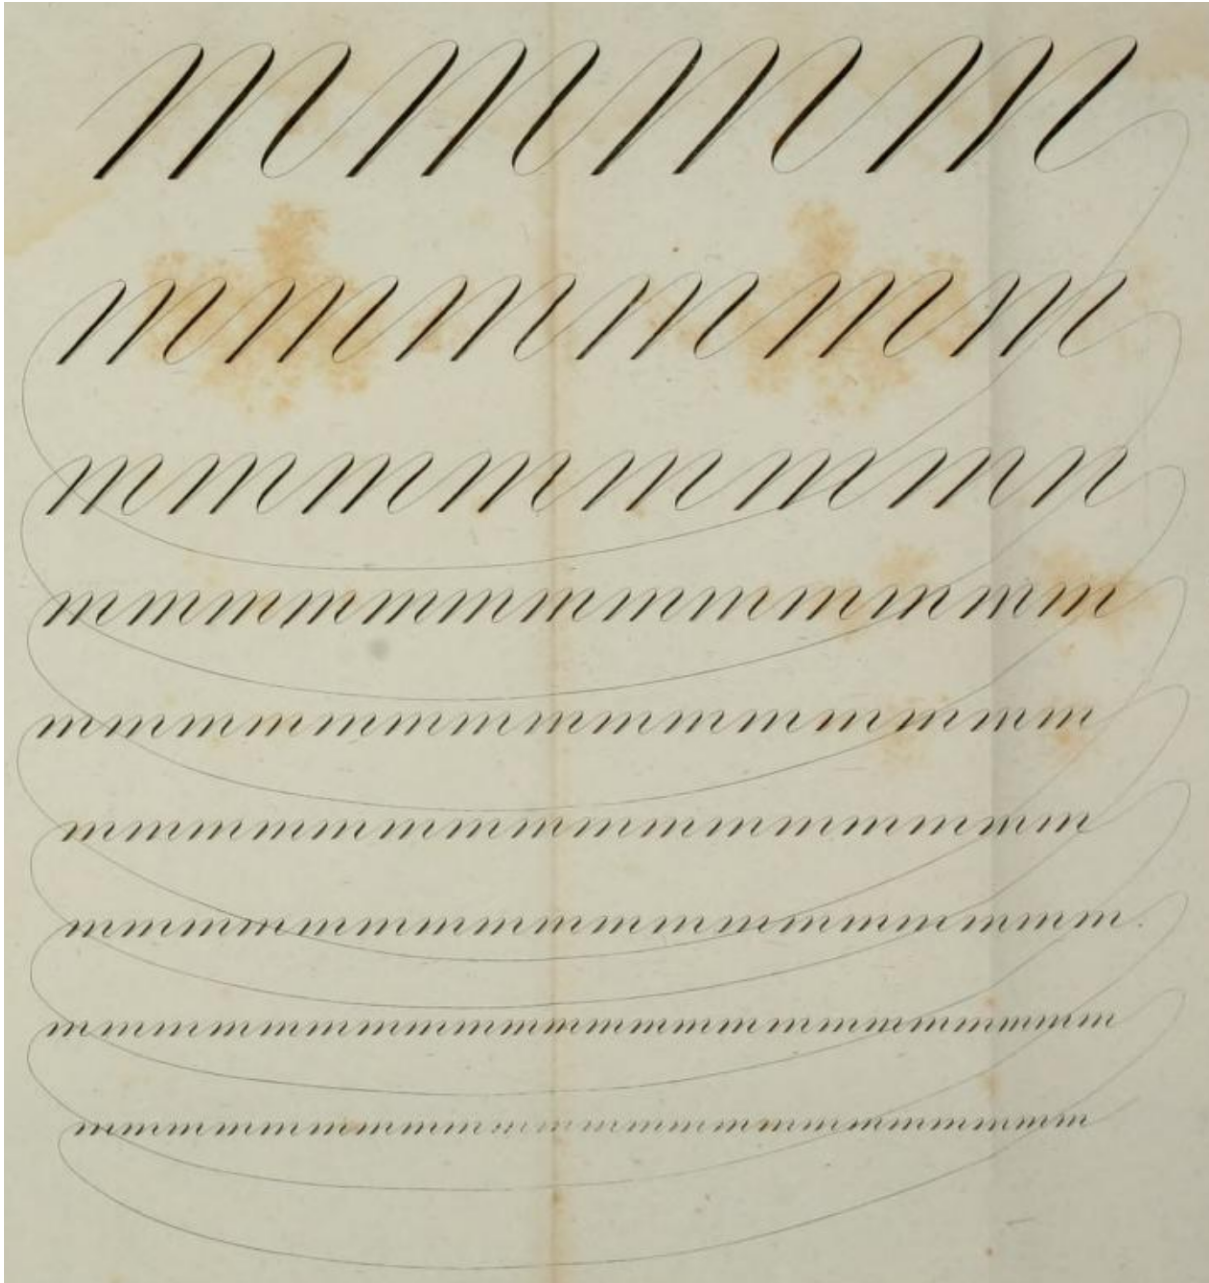 mmmm
mmmmmm
mmmmmmmn
mmmmmmmmmmmmm
mmmmmmmmmmmmmmm
mmmmmmmmmmmmmmmm
mmmmmmmmmmmmmmmmmm
mmmmmmmmmmmmmmmmmmmmmmm
mmmmmmmmmmmmmmmmmmmmmmm